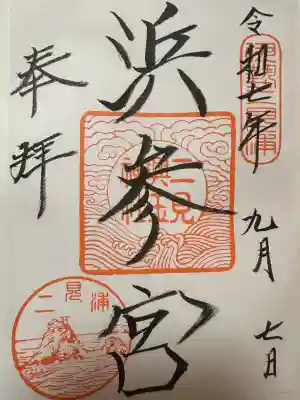 令和七年 九月 七日
浜参宮
奉拝
二見浦